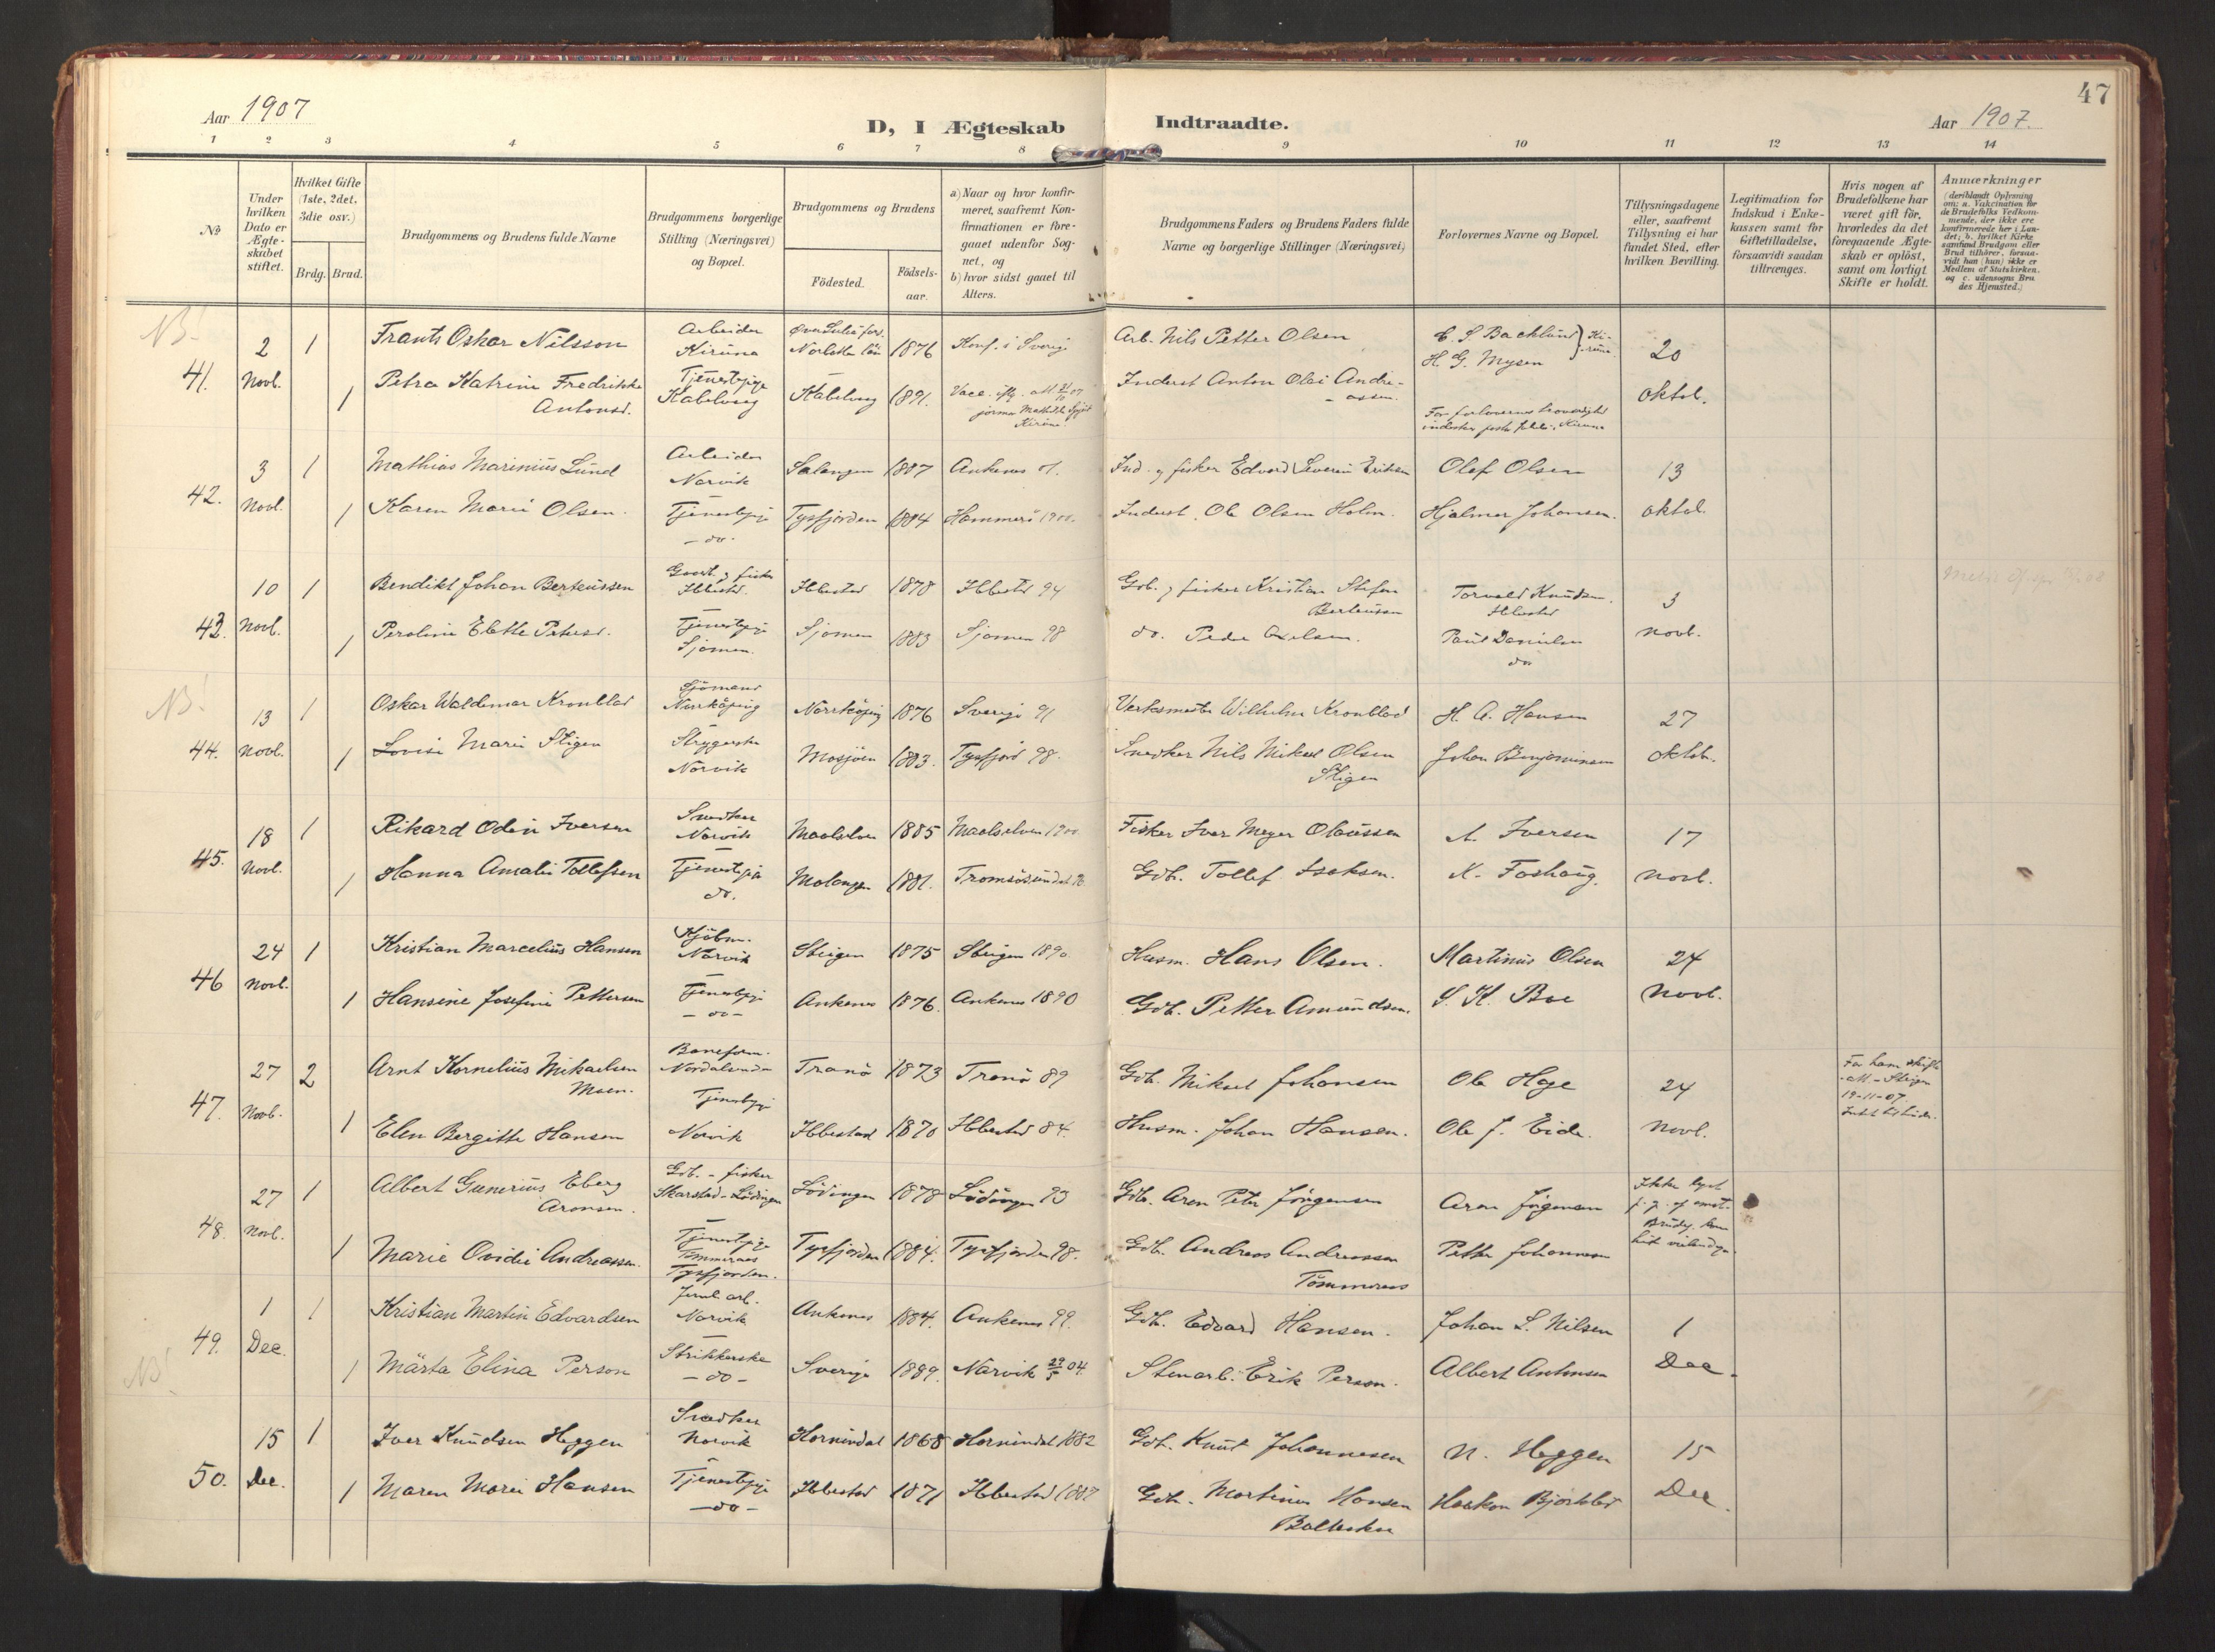 47
Aar 1907
D, I Ægteskab Indtraadte.
Aar 1907.
1 2 3 4 5 6 7 8 9 10 11 12 13 14
No
Under hvilken Dato er Ægteskabet stiftet.
Hvilket Gifte (1ste, 2det, 3die osv.)
Brdg. Brud.
Brudgommens og Brudens fulde Navne
Brudgommens borgerlige Stilling (Næringsvei) og Bopæl.
Brudgommens og Brudens
Fødested.
Fødselsaar.
a) Naar og hvor konfirmeret, saafremt Konfirmationen er foregaaet udenfor Sognet, og
b) hvor sidst gaaet til Alters.
Brudgommens Faders og Brudens Faders fulde Navne og borgerlige Stillinger (Næringsvei)
Forlovernes Navne og Bopæl.
Tillysningsdagene eller, saafremt Tillysning ei har fundet Sted, efter hvilken Bevilling.
Legitimation for Indskud i Enkekassen samt for Giftetilladelse, forsaavidt saadan tiltrænges.
Hvis nogen af Brudefolkene har været gift før, hvorledes da det foregaaende Ægteskab er opløst, samt om lovligt Skifte er holdt.
Anmærkninger
(deriblandt Oplysning om: a. Vakcination for de Brudefolks Vedkommende, der ikke ere konfirmerede her i Landet; b. hvilket Kirkesamfund Brudgom eller Brud tilhører, forsaavidt han (hun) ikke er Medlem af Statskirken, og c. udensogns Brudes Hjemsted.)
NB!
41. 2 Novb. 1 Frants Oskar Nilsson Arbeider Kiruna 1876 Konf. i Sverige Arb. Nils Petter Olsen H. G. Mysen 20 oktob.
1 Petra Katrine Fredrikke Antonsd. Tjenestepige Kabelvaag Kabelvaag 1891. Inderst Anton Olai Andreassen.
42. 3 Novb. 1 Mathias Marinius Lund Arbeider Narvik Salangen 1887 Ankenes Ind. og fisker Edvard Severin Eriksen Olef Olsen 13 oktob.
1 Karen Marie Olsen. Tjenestepige - do. Tysfjorden 1884 Hammerö 1900. Inderst Ole Olsen Holm. Hjalmar Johansen.
43. 10 Novb. 1 Bendikt Johan Berteussen Gaardb. og fisker Ibbestad. Ibbestad 1878 Ibbestad 94 Gdb. og fisker Kristian Stefen Berteussen Torvald Knudsen. Ibbestad 3 Novb.
1 Peroline Elette Petersd. Tjenestepige Sjomen. Sjomen 1883 Sjomen 98 do. Peder Axelsen. Paul Danielsen do
NB!
44. 13 Novb. 1 Oskar Waldemar Kronblad Sjömand Norrköping Norrköping 1876 Sverige 91 Verksmester Wilhelm Kronblad H. A. Hansen 27 oktob.
1 Lovise Marie Stigen Strygerske Narvik Mosjöen 1883. Tysfjord 98. Snedker Nils Mikael Olsen Stigen Johan Benjaminsen
45. 18 Novb. 1 Rikard Odin Iversen Snedker Narvik Maalselven 1885 Maalselven 1900 Fisker Iver Meyer Olaussen A. Iversen 17 Novb.
1 Hanna Amalie Tollefsen Tjenestepige do. Malangen 1881. Tromsösundet Gdb. Tollef Isaksen. K. Foshaug.
46 24 Novb. 1 Kristian Marcelius Hansen Kjöbm. Narvik Steigen 1875 Steigen 1890 Husm. Hans Olsen. Martinus Olsen 24 Novb.
1 Hansine Josefine Pettersen Tjenestepige - do - Ankenes 1876. Ankenes 1890 Gdb. Petter Amundsen. S. K. Boe
47. 27 Novb. 2 Arnt Kornelius Mikaelsen Moen. Baneform. Tranö 1873 Tranö 89 Gdb. Mikael Johansen Ole Hage 24 Novb. For ham skifte Steigen 19-11-07.
1 Elen Bergitte Hansen Tjenestepige Narvik Ibbestad 1870 Ibbestad 84. Husm. Johan Hansen. Ole J. Eide.
48. 27 Novb. 1 Albert Gunerius Eberg Aronsen. Gdb. - fisker Skarstad - Lödingen Lödingen 1878 Lödingen 93 Gdb. Aron Peter Jörgensen Aron Jörgensen Ikke lyst
1 Marie Ovidie Andreassen. Tjenestepige Tömmernes Tysfjorden. Tysfjorden 1884. Tysfjorden 98. Gdb. Andreas Andreassen Tömmernes Petter Johannesen
49. 1 Dec. 1 Kristian Martin Edvardsen Jernb. arb. Narvik Ankenes 1884. Ankenes 99. Gdb. Edvard Hansen. Johan L. Nilsen 1 Dec.
NB!
1 Märta Elina Person Strikkerske - do - Sverige 1889. Narvik 29/5 04. Stenarb. Erik Person. Albert Antonsen
50. 15 Dec. 1 Iver Knudsen Heggen Snedker Narvik Hornindal 1868 Hornindal 1882 Gdb. Knut Johannesen N. Heggen 15 Dec.
1 Maren Marie Hansen Tjenestepige - do - Ibbestad 1871 Ibbestad 1887 Gdb. Martinus Hansen Haakon